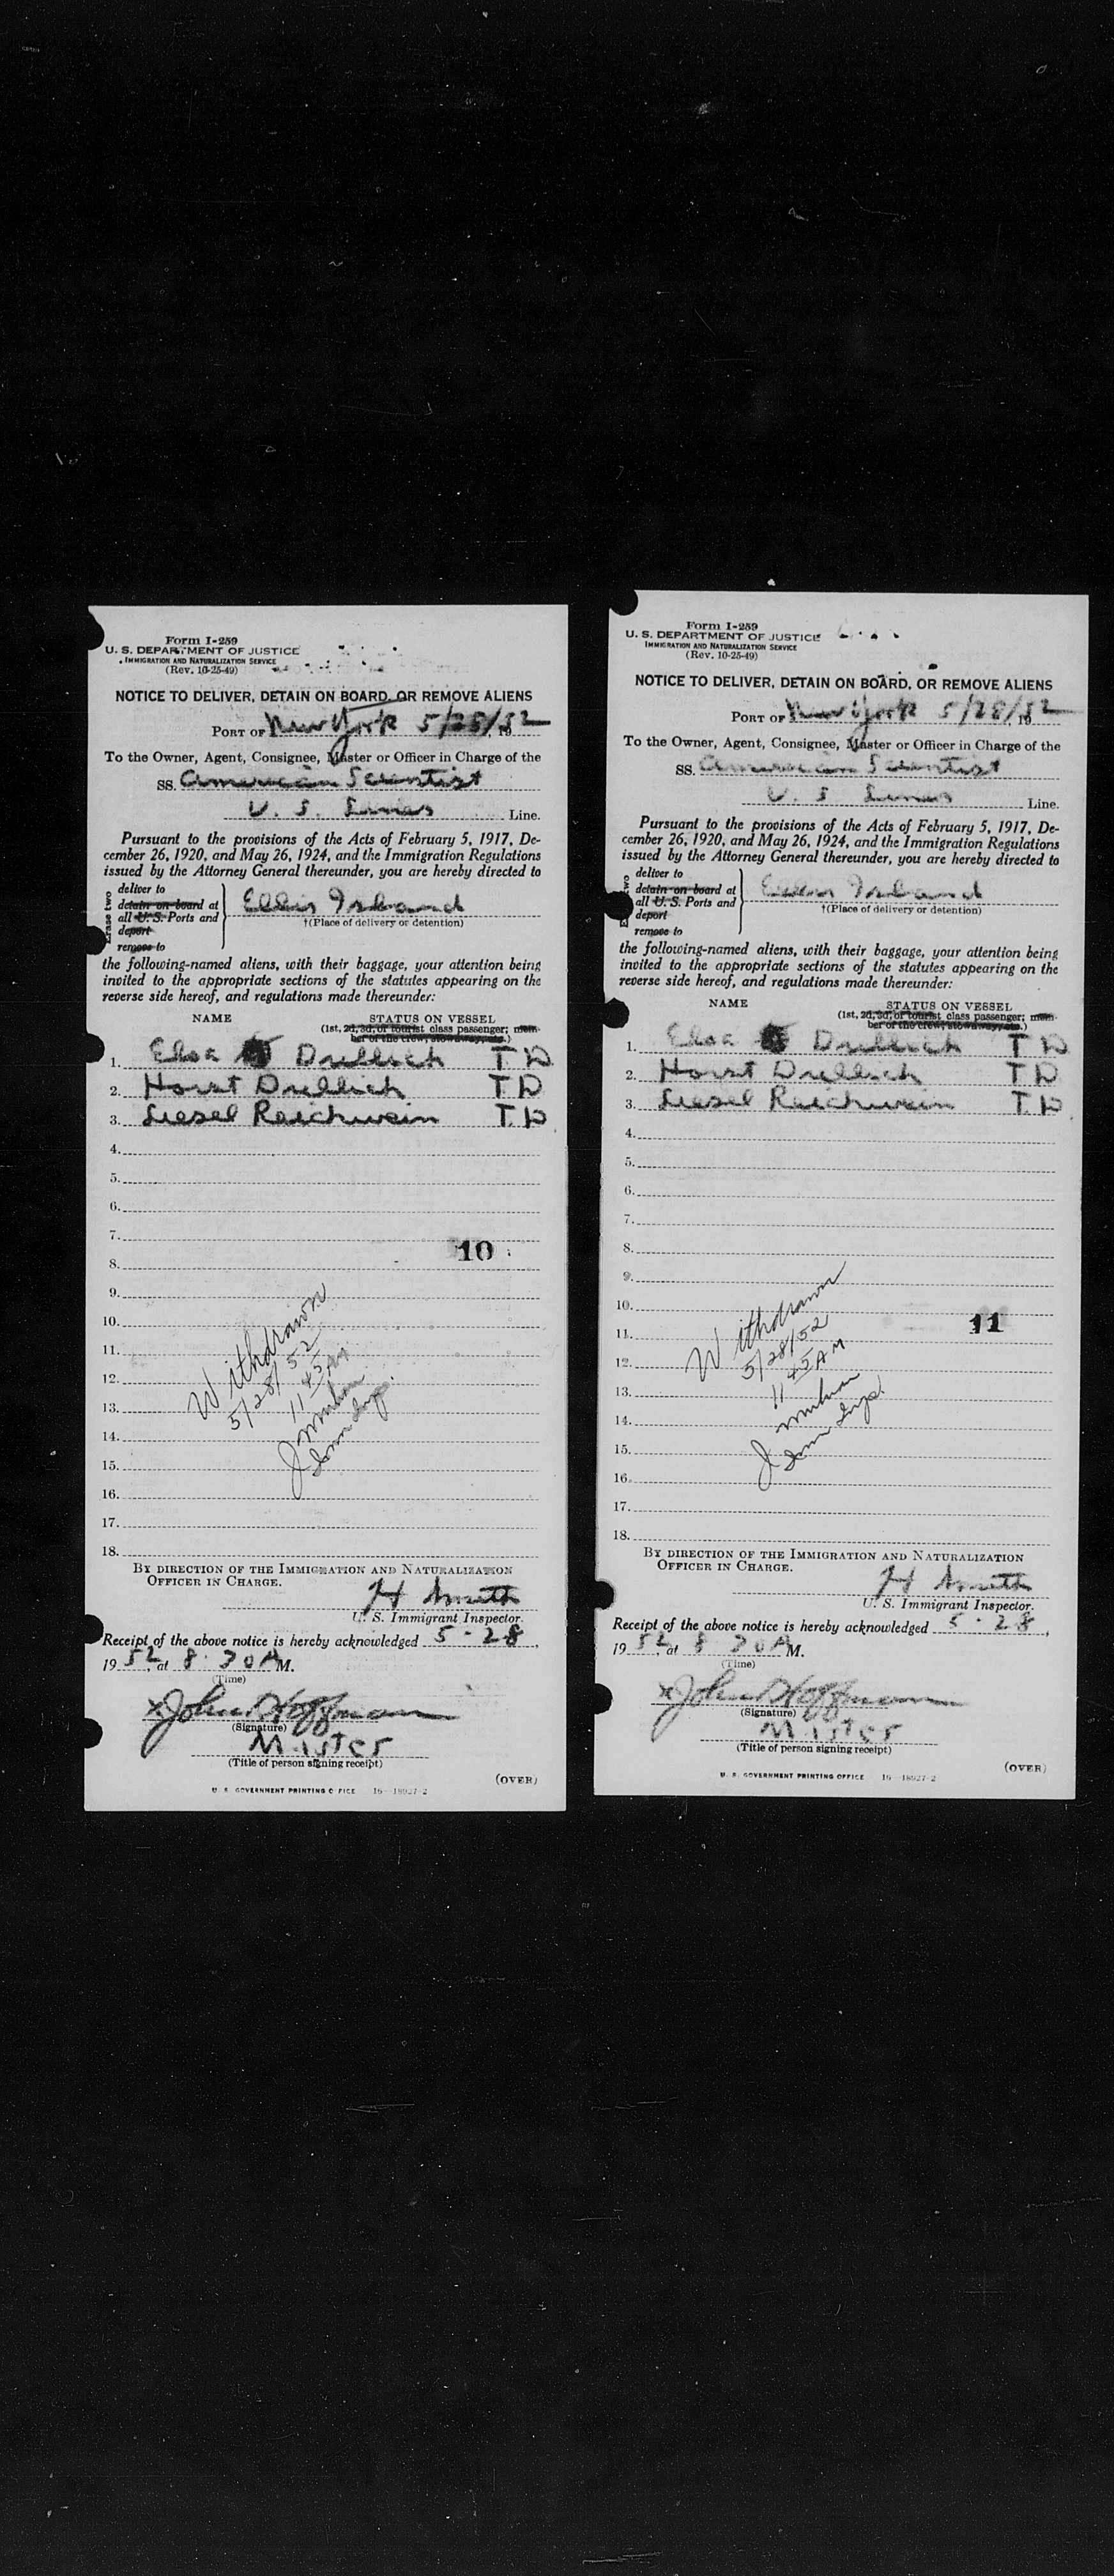 Form I-259
U. S. DEPARTMENT OF JUSTICE
IMMIGRATION AND NATURALIZATION SERVICE
(Rev. 10-25-49)
NOTICE TO DELIVER, DETAIN ON BOARD, OR REMOVE ALIENS
PORT OF New York 5/28/52, 19
To the Owner, Agent, Consignee, Master or Officer in Charge of the
SS. American Scientist
U. S. Lines Line.
Pursuant to the provisions of the Acts of February 5, 1917, De-
cember 26, 1920, and May 26, 1924, and the Immigration Regulations
issued by the Attorney General thereunder, you are hereby directed to
Erase two
deliver to
detain on board at
all U. S. Ports and
deport
remove to
Ellis Island
†(Place of delivery or detention)
the following-named aliens, with their baggage, your attention being
invited to the appropriate sections of the statutes appearing on the
reverse side hereof, and regulations made thereunder:
NAME STATUS ON VESSEL
(1st, 2d, 3d, or tourist class passenger; mem-
ber of the crew, stowaway, etc.)
1. Elsa Drellich T D
2. Horst Drellich T D
3. Liesel Reichwein T D
4.
5.
6.
7.
10
8.
9.
10.
11.
12.
13.
14.
15.
16.
17.
18.
Withdrawn
5/28/52
11 45 AM
J
Imm Insp.
BY DIRECTION OF THE IMMIGRATION AND NATURALIZATION
OFFICER IN CHARGE.
H Smith
U. S. Immigrant Inspector.
Receipt of the above notice is hereby acknowledged 5-28,
1952, at 8 30 AM.
(Time)
x John Hoffman
(Signature)
Master
(Title of person signing receipt)
(OVER)
U. S. GOVERNMENT PRINTING OFFICE 16—18927-2
Form I-259
U. S. DEPARTMENT OF JUSTICE
IMMIGRATION AND NATURALIZATION SERVICE
(Rev. 10-25-49)
NOTICE TO DELIVER, DETAIN ON BOARD, OR REMOVE ALIENS
PORT OF New York 5/28/52, 19
To the Owner, Agent, Consignee, Master or Officer in Charge of the
SS. American Scientist
U. S Lines Line.
Pursuant to the provisions of the Acts of February 5, 1917, De-
cember 26, 1920, and May 26, 1924, and the Immigration Regulations
issued by the Attorney General thereunder, you are hereby directed to
deliver to
detain on board at
all U. S. Ports and
deport
remove to
Ellis Island
†(Place of delivery or detention)
the following-named aliens, with their baggage, your attention being
invited to the appropriate sections of the statutes appearing on the
reverse side hereof, and regulations made thereunder:
NAME STATUS ON VESSEL
(1st, 2d, 3d, or tourist class passenger; mem-
ber of the crew, stowaway, etc.)
1. Elsa Drellich T D
2. Horst Drellich T D
3. Liesel Reichwein T D
4.
5.
6.
7.
8.
9.
10.
11
11.
12.
13.
14.
15.
16.
17.
18.
Withdrawn
5/28/52
11 45 AM
J
Imm Insp.
BY DIRECTION OF THE IMMIGRATION AND NATURALIZATION
OFFICER IN CHARGE.
H Smith
U. S. Immigrant Inspector.
Receipt of the above notice is hereby acknowledged 5-28,
1952, at 8 30 AM.
(Time)
x John Hoffman
(Signature)
Master
(Title of person signing receipt)
(OVER)
U. S. GOVERNMENT PRINTING OFFICE 16—18927-2